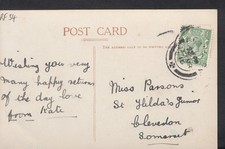 POST CARD
Wishing you very
many happy returns
of the day love
from Kate
Miss Parsons
St Hilda's Junior
Clevedon
Somerset